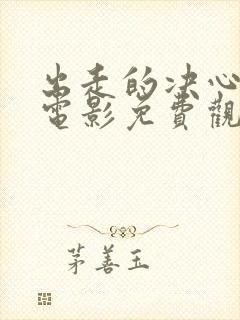 出走的决心
電影免費觀
茅善玉